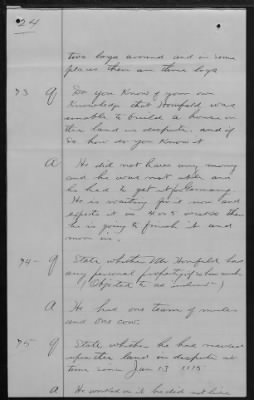 24
two logs around and in some
places there are three logs
73 Q Do you know of your own
knowledge that Homfeld was
unable to build a house on
this land in dispute. and if
so how do you know it
A He did not have any money
and he was not able and
he had to get it from Germany.
He is waiting for it now and
expects it in 4 or 5 weeks then
he is going to finish it and
move in.
74 - Q State whether Mr Homfeld has
any personal property, if so how much
(Objected to as irrelevant)
A He had one team of mules
and one cow.
75 - Q State whether he had resided
upon the land in dispute at
time since Jan 13
A He worked on it he did not live